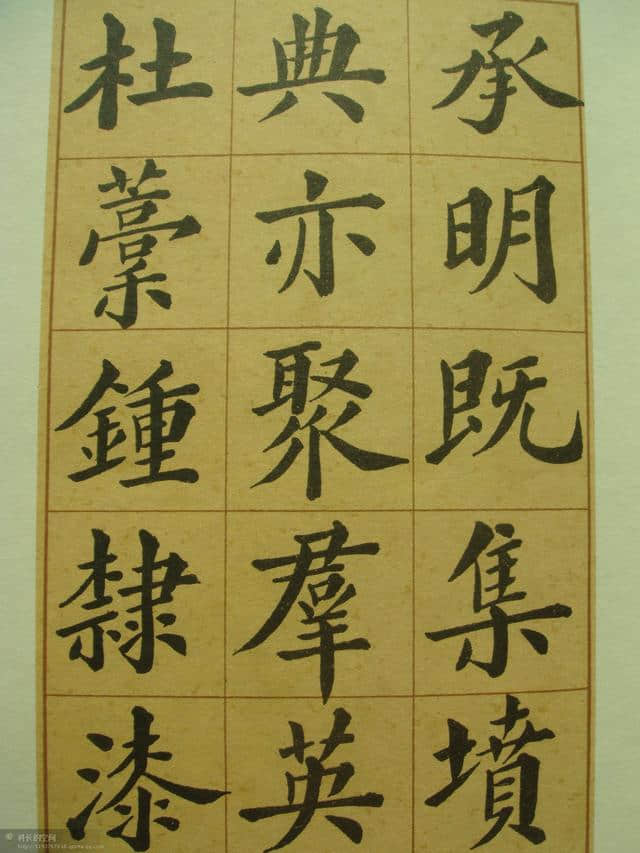 承明既集墳
典亦聚羣英
杜藁鍾隸漆